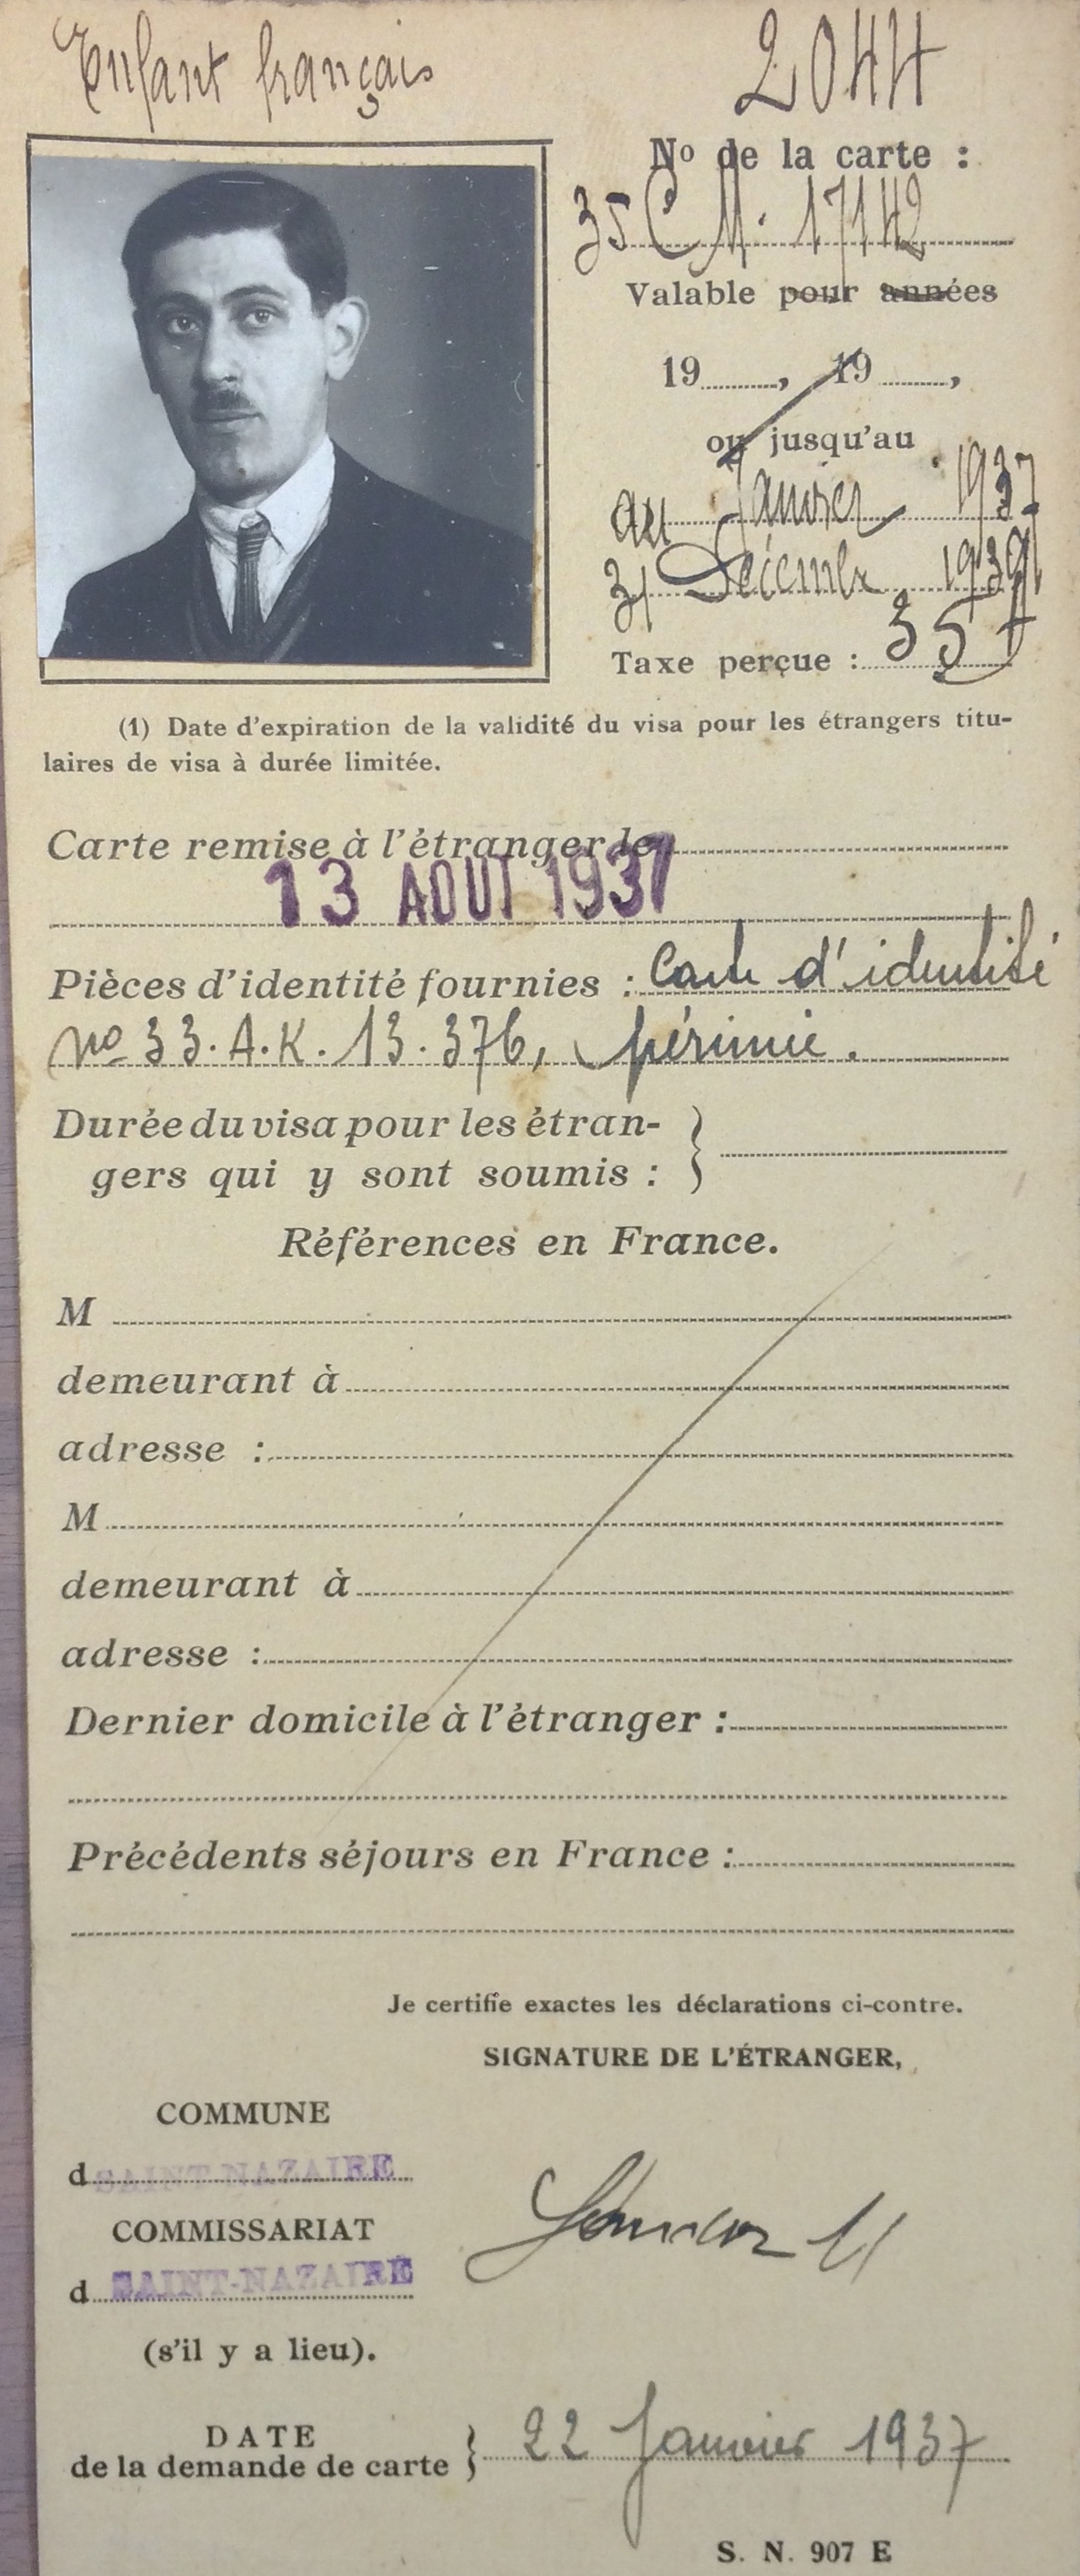 Enfant français
2044
No de la carte :
35 C M. 17142
Valable pour années
19........, 19........,
ou jusqu'au
au Janvier 1937
31 Décembre 1939
Taxe perçue : 35 f
(1) Date d'expiration de la validité du visa pour les étrangers titu-
laires de visa à durée limitée.
Carte remise à l'étranger le
13 AOUT 1937
Pièces d'identité fournies : Carte d'identité
no 33. A.K. 13.376, périmée.
Durée du visa pour les étran-
gers qui y sont soumis :
Références en France.
M
demeurant à
adresse :
M
demeurant à
adresse :
Dernier domicile à l'étranger :
Précédents séjours en France :
Je certifie exactes les déclarations ci-contre.
SIGNATURE DE L'ÉTRANGER,
COMMUNE
d SAINT-NAZAIRE
COMMISSARIAT
d SAINT-NAZAIRE
(s'il y a lieu).
DATE
de la demande de carte } 22 Janvier 1937
S. N. 907 E